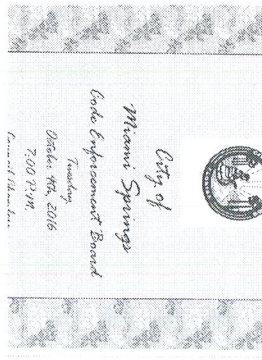 City of
Miami Springs
Code Enforcement Board
Tuesday
October 4th, 2016
7:00 P.M.
Council Chambers